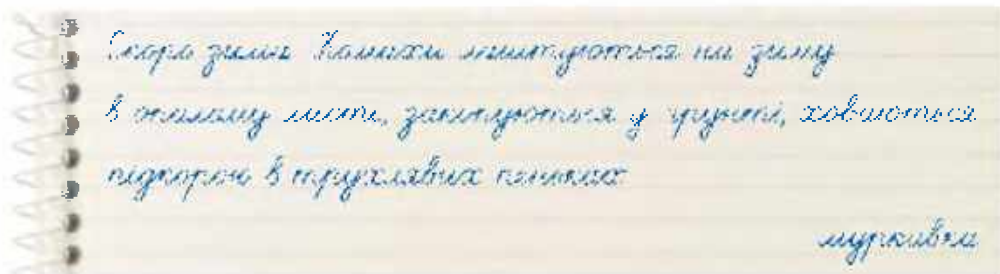 Скоро зима Комахи лаштуються на зиму
в опалому листі, закопуються у ґрунті, ховаються
підкорою в трухлявих пеньках
муркавка